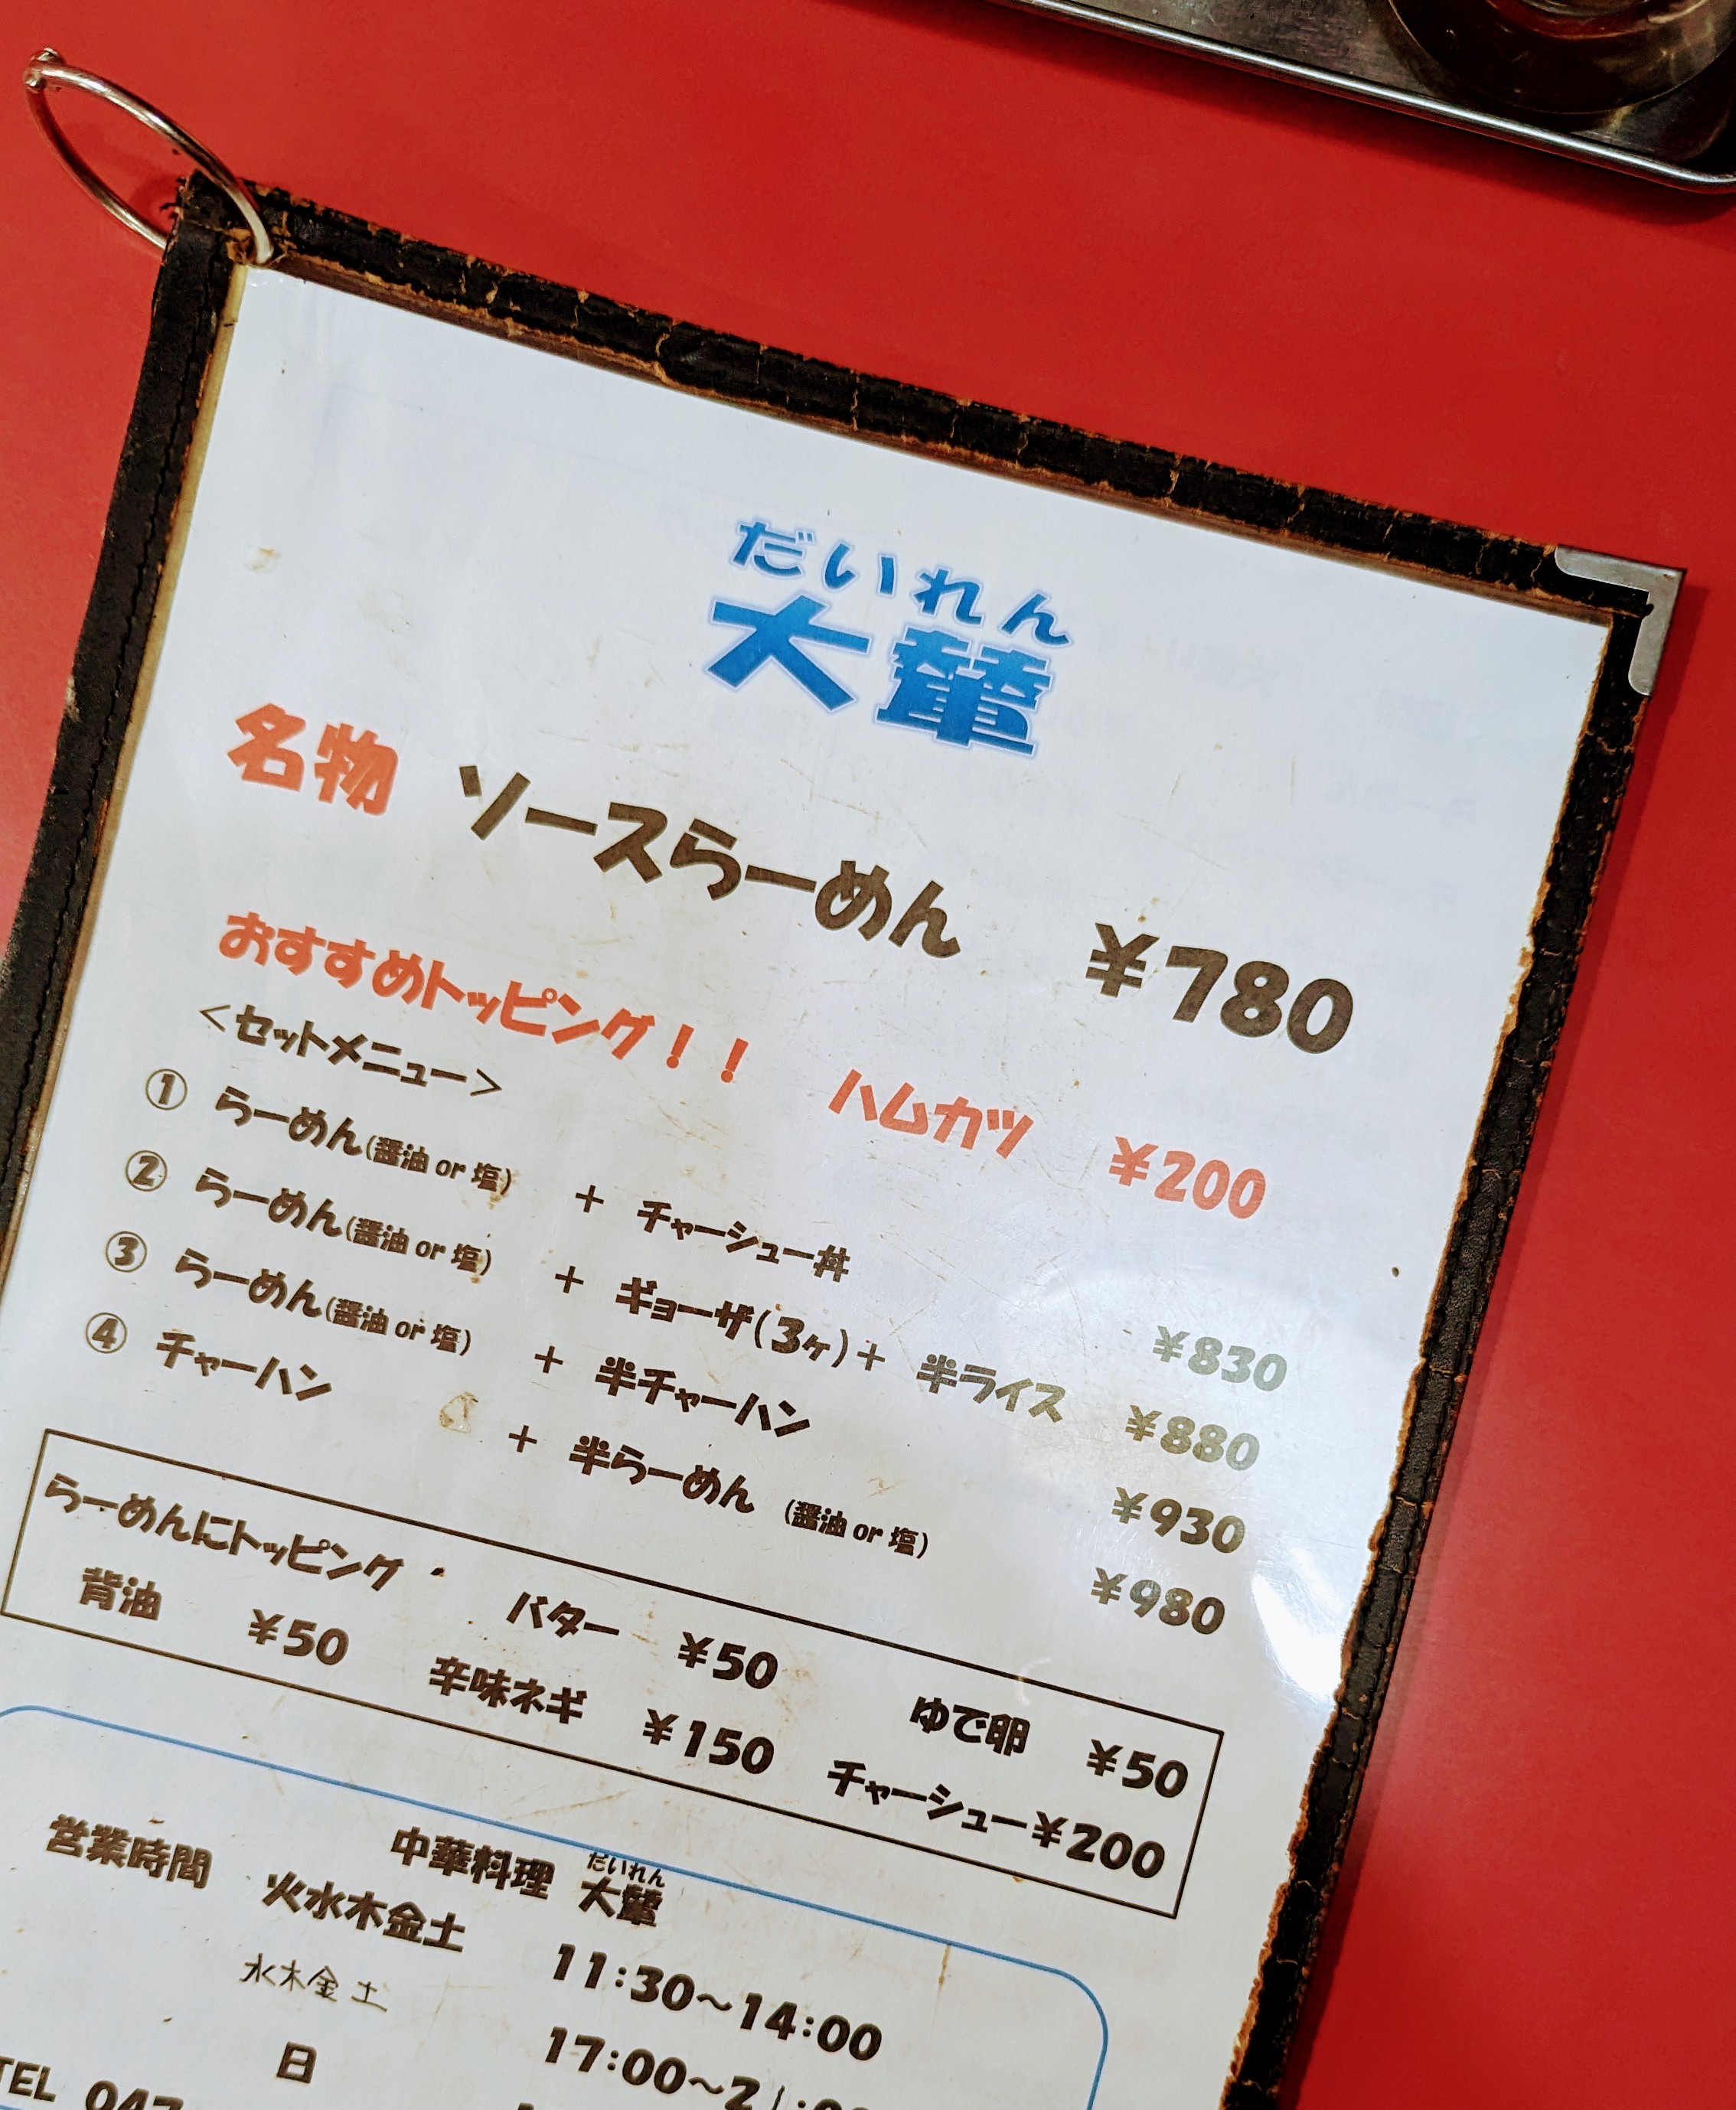 だいれん
大輦
名物 ソースらーめん ¥780
おすすめトッピング！！ ハムカツ ¥200
＜セットメニュー＞
① らーめん(醤油 or 塩) ＋ チャーシュー丼 ¥830
② らーめん(醤油 or 塩) ＋ ギョーザ(3ヶ)＋ 半ライス ¥880
③ らーめん(醤油 or 塩) ＋ 半チャーハン ¥930
④ チャーハン ＋ 半らーめん (醤油 or 塩) ¥980
らーめんにトッピング・ バター ¥50 ゆで卵 ¥50
背油 ¥50 辛味ネギ ¥150 チャーシュー¥200
中華料理 大輦
だいれん
営業時間 火水木金土 11:30～14:00
水木金土 17:00～2
日
TEL 047